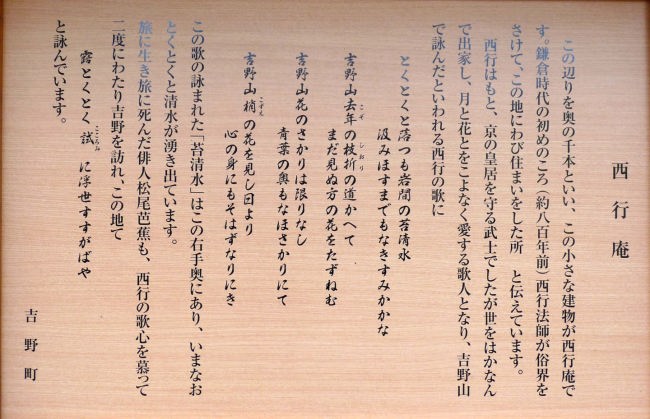 西行庵
この辺りを奥の千本といい、この小さな建物が西行庵で
す。鎌倉時代の初めのころ（約八百年前）西行法師が俗界を
さけて、この地にわび住まいをした所　と伝えています。
西行はもと、京の皇居を守る武士でしたが世をはかなん
で出家し、月と花とをこよなく愛する歌人となり、吉野山
で詠んだといわれる西行の歌に
とくとくと落つる岩間の苔清水
汲みほすまでもなきすみかかな
吉野山去年の枝折の道かへて
こぞ　しおり
まだ見ぬ方の花をたずねむ
吉野山花のさかりは限りなし
青葉の奥もなほさかりにて
吉野山梢の花を見し日より
こずえ
心の身にもそはずなりにき
この歌の詠まれた「苔清水」はこの右手奥にあり、いまなお
とくとくと清水が湧き出ています。
旅に生き旅に死んだ俳人松尾芭蕉も、西行の歌心を慕って
二度にわたり吉野を訪れ、この地で
露とくとく試に浮世すすがばや
こころみ
と詠んでいます。
吉野町